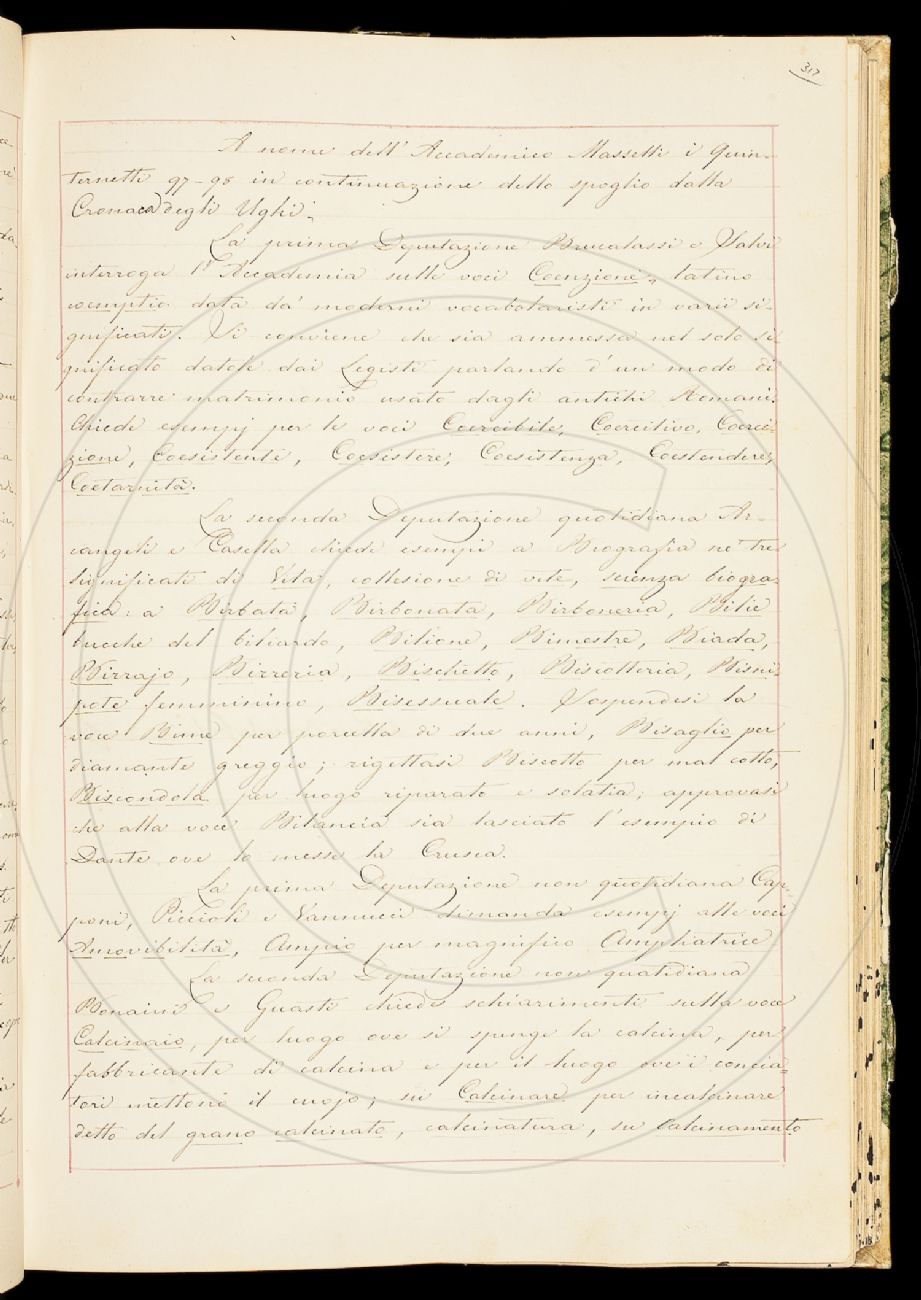 317
A nome dell' Accademico Masselli i Quin-
ternetti 97-98 in continuazione dello spoglio dalla
Cronaca degli Ughi.
La prima Deputazione Brucalassi e Salvi
interroga l' Accademia sulle voci Coenzione, latino
coemptio data da' moderni vocabolaristi in varii si-
gnificati. Si conviene che sia ammessa nel solo si-
gnificato datole dai Legisti parlando d' un modo di
contrarre matrimonio usato dagli antichi Romani.
Chiede esempj per le voci Coercibile, Coercitivo, Coerci-
zione, Coesistente, Coesistere, Coesistenza, Coestendere,
Coetarnità.
La seconda Deputazione quotidiana Ar-
cangeli e Casella chiede esempii a Biografia ne' tre
significati di Vita, collezione di vite, scienza biogra-
fica: a Birbata, Birbonata, Birboneria, Bilie
bucche del biliardo, Bilione, Bimestre, Biada,
Birrajo, Birreria, Bischetto, Biscotteria, Bisni-
pote femminino, Bisessuale. Sospendesi la
voce Bime per porcella di due anni, Bisaglio per
diamante greggio; rigettasi Biscotto per mal cotto,
Biscondola per luogo riparato e solatìa; approvasi
che alla voce Bilancia sia lasciato l' esempio di
Dante ove lo messe la Crusca.
La prima Deputazione non quotidiana Cap-
poni, Piccioli e Vannucci dimanda esempj alle voci
Amovibilità, Ampio per magnifico Ampliatrice
La seconda Deputazione non quotidiana
Bonaini e Guasti chiede schiarimenti sulla voce
Calcinaio, per luogo ove si spenge la calcina, per
fabbricante di calcina e per il luogo ove i concia-
tori mettono il cuojo; su Calcinare per incalcinare
detto del grano calcinato, calcinatura, su Calcinamento